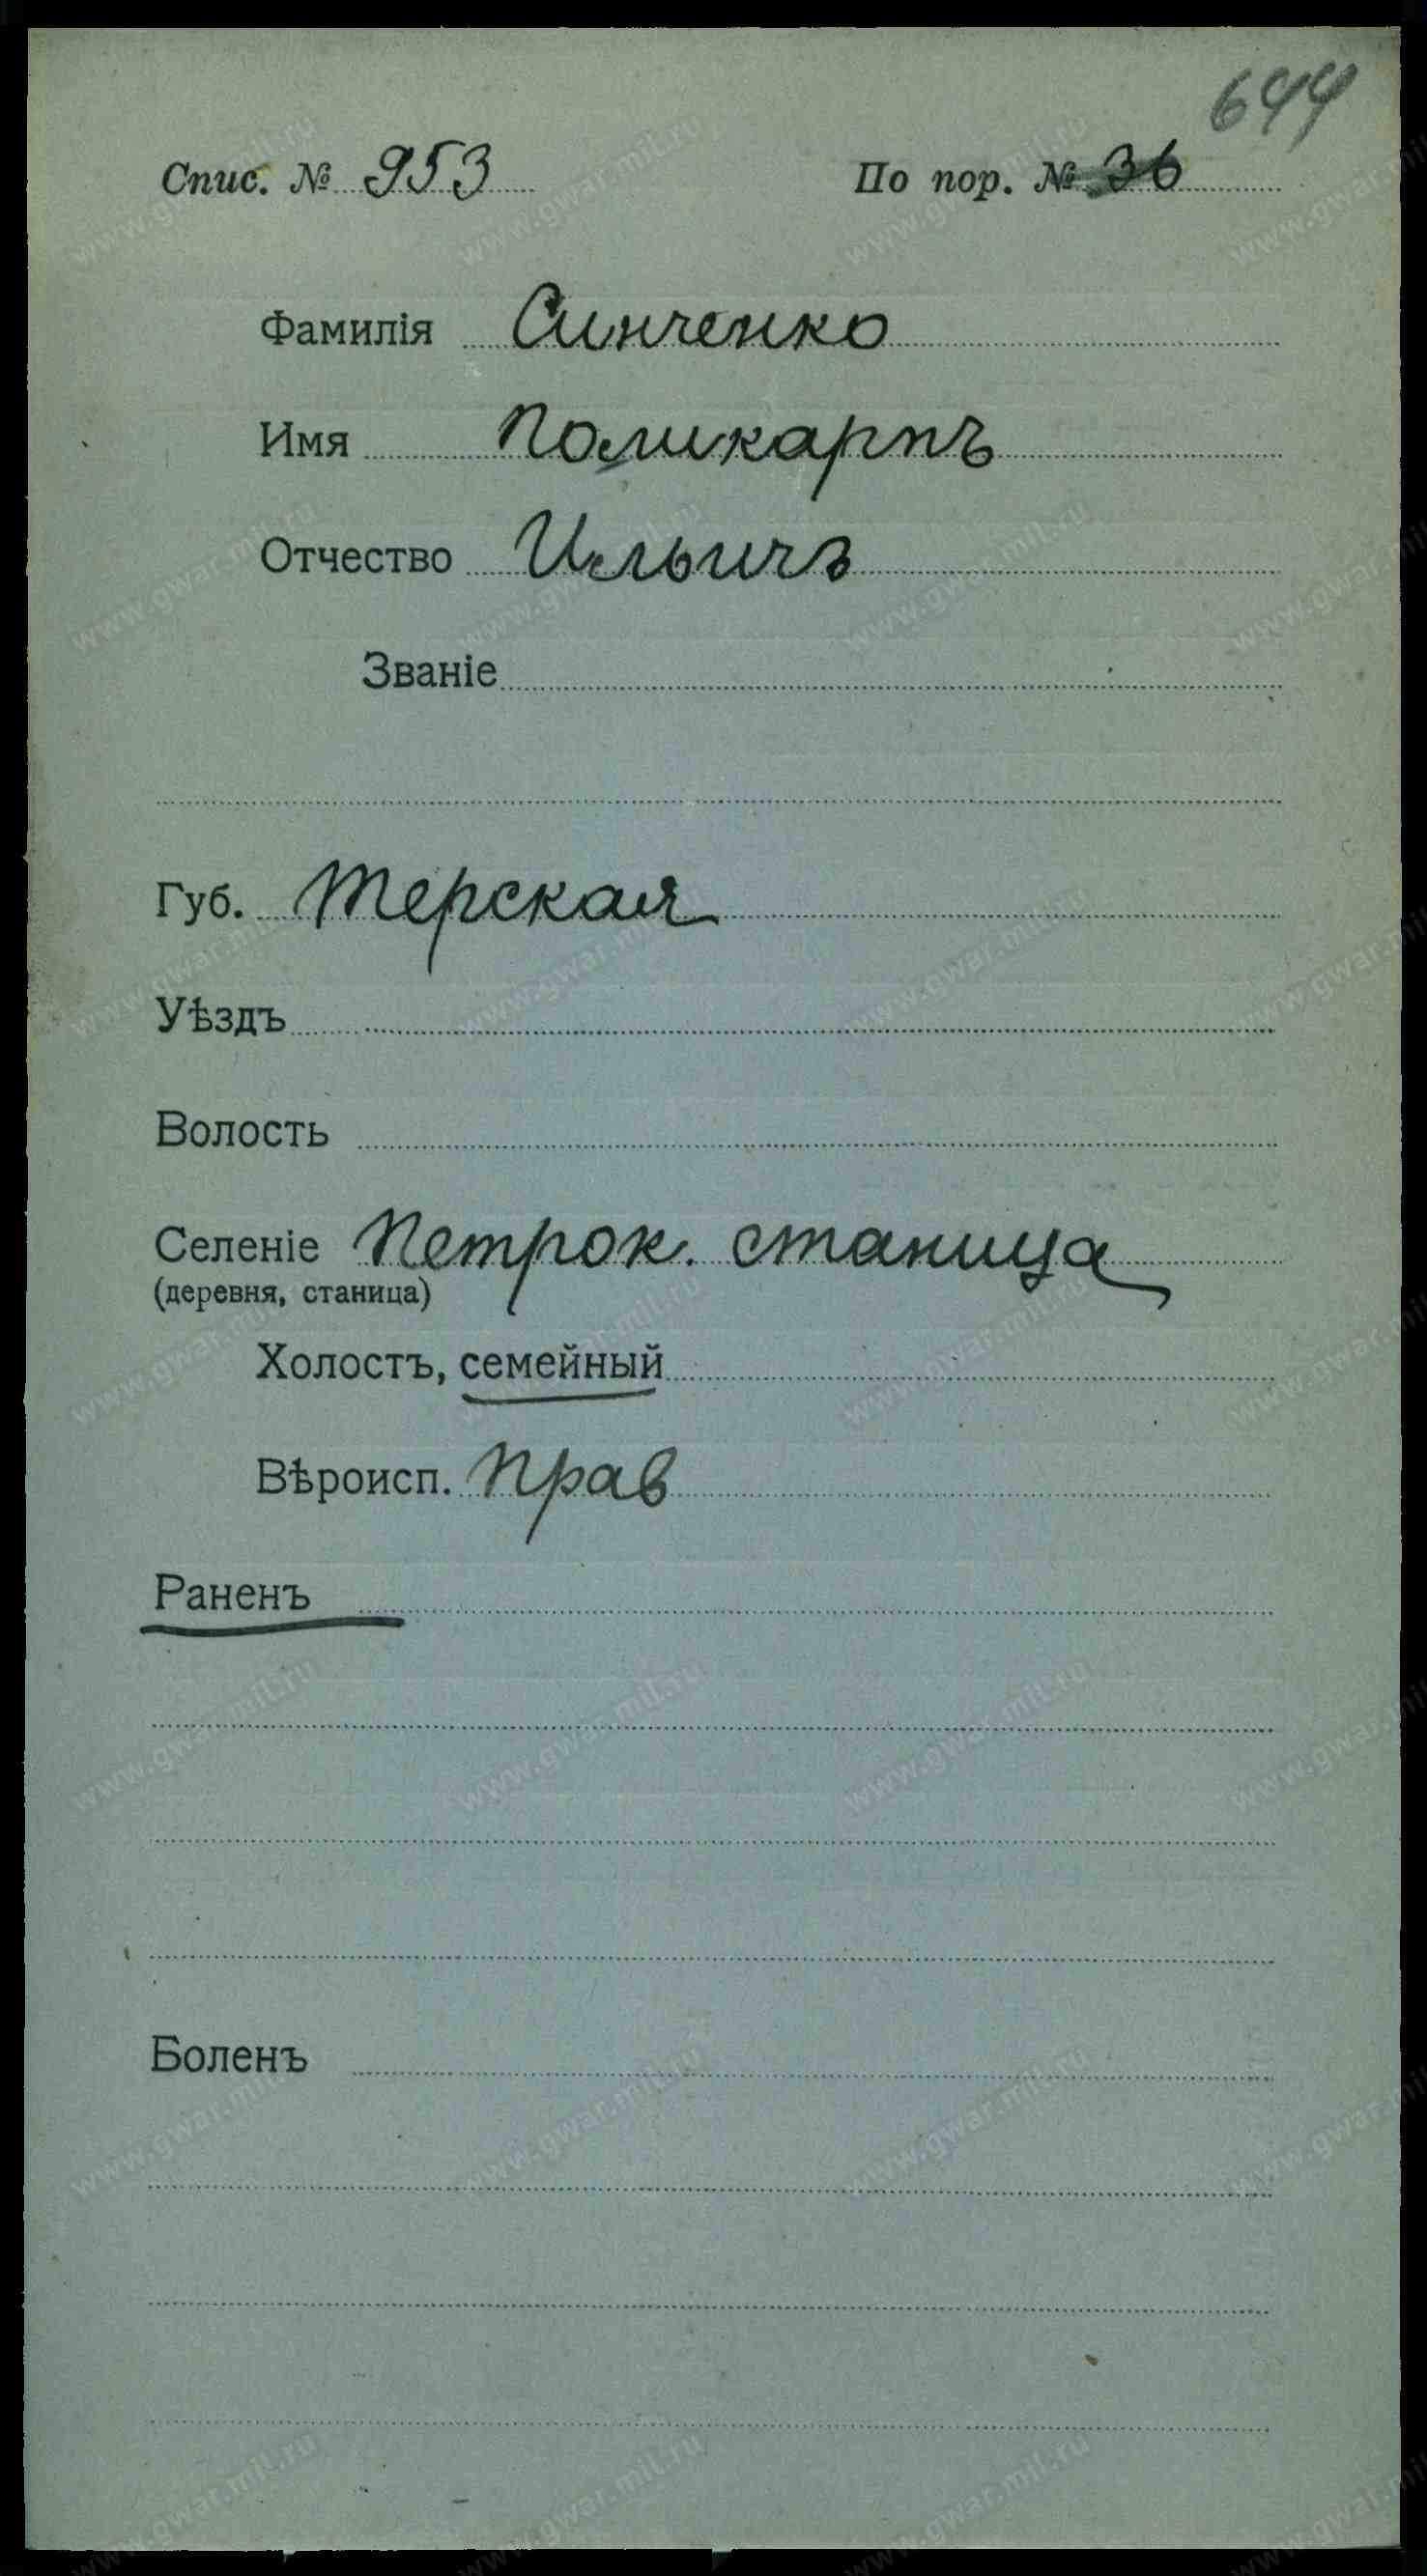 644
Спис. № 953 По пор. № 36
Фамилія Синченко
Имя Поликарпъ
Отчество Ильичъ
Званіе
Губ. Терская
Уѣздъ
Волость
Селеніе Петрок. станица
(деревня, станица)
Холостъ, семейный
Вѣроисп. Прав
Раненъ
Боленъ
www.gwar.mil.ru